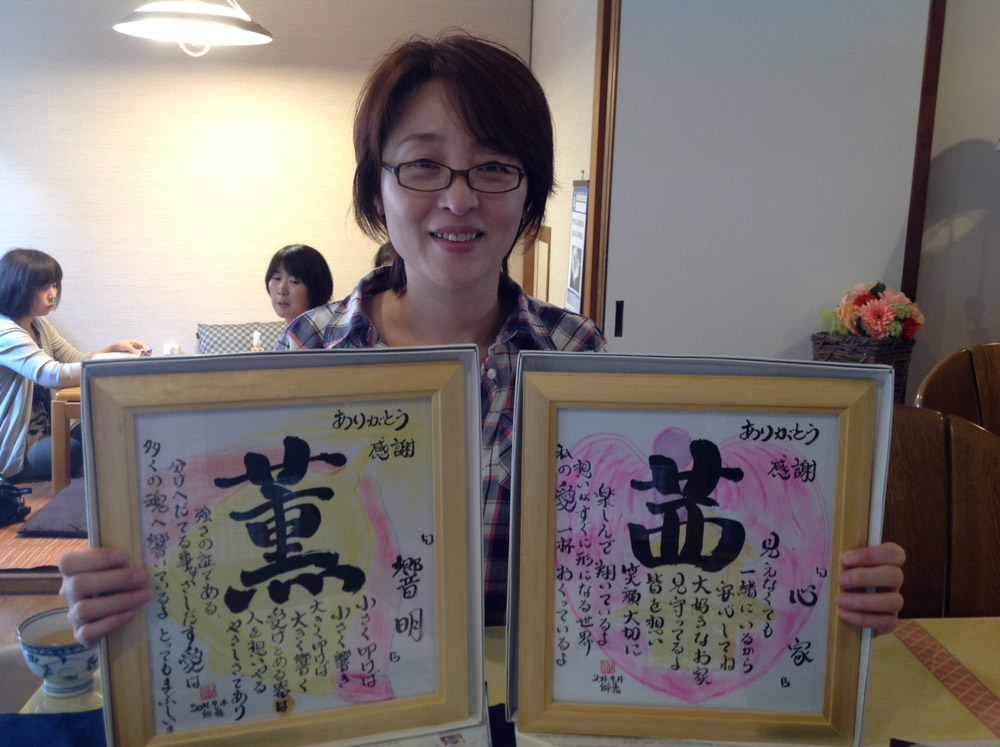 ありがとう
感謝
薫
「響明」
小さく叩けば
小さく響き
大きく叩けば
大きく響く
受けとめる器は
人を想いやる
やさしさであり
強さの証である
分けへだてる事なくさしだす愛は
多くの魂へ響いているよ とってもまぶしい
ありがとう
感謝
茜
「心家」
見えなくても
一緒にいるから
安心してね
大好きなお家
見守ってるよ
皆を想い
笑顔大切に
楽しんで翔いているよ
想いがすぐに形になる世界
私の愛一杯おくっているよ